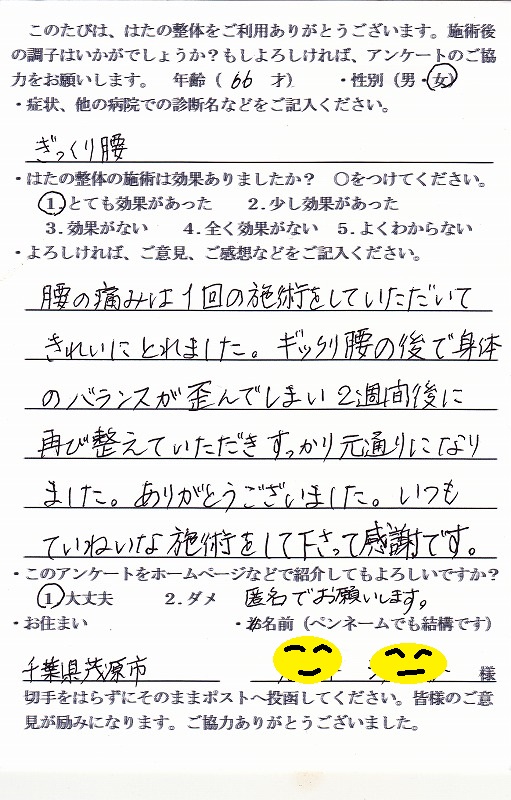 このたびは、はたの整体をご利用ありがとうございます。施術後
の調子はいかがでしょうか？もしよろしければ、アンケートのご協
力をお願いします。 年齢（ 66 才） ・性別（男・女）
・症状、他の病院での診断名などをご記入ください。
ぎっくり腰
・はたの整体の施術は効果ありましたか？ 〇をつけてください。
1.とても効果があった 2.少し効果があった
3.効果がない 4.全く効果がない 5.よくわからない
・よろしければ、ご意見、ご感想などをご記入ください。
腰の痛みは1回の施術をしていただいて
きれいにとれました。ギックリ腰の後で身体
のバランスが歪んでしまい2週間後に
再び整えていただきすっかり元通りになり
ました。ありがとうございました。いつも
ていねいな施術をして下さって感謝です。
・このアンケートをホームページなどで紹介してもよろしいですか？
1.大丈夫 2.ダメ 匿名でお願いします。
・お住まい ・お名前（ペンネームでも結構です）
千葉県茂原市 様
切手をはらずにそのままポストへ投函してください。皆様のご意
見が励みになります。ご協力ありがとうございました。